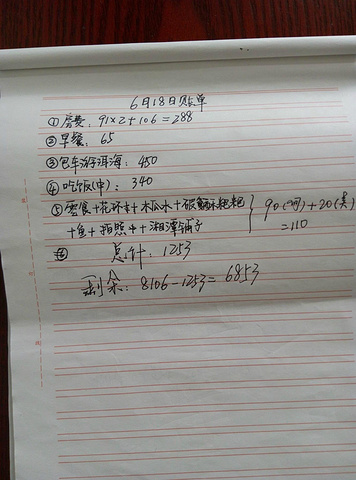 6月18日账单
①房费：91×2+106=288
②早餐：65
③包车游洱海：450
④吃饭(中)：340
⑤零食+花环+木瓜水+破酥粑粑
+鱼+拍照+湘潭铺子
90(阿)+20(吴)
=110
⑥总计：1253
剩余：8106-1253=6853